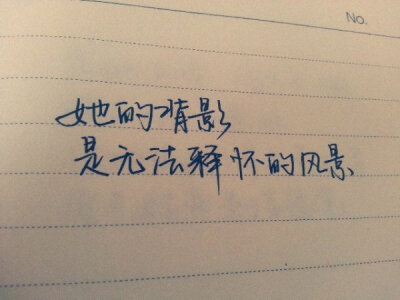 No.
她的背影
是无法释怀的风景